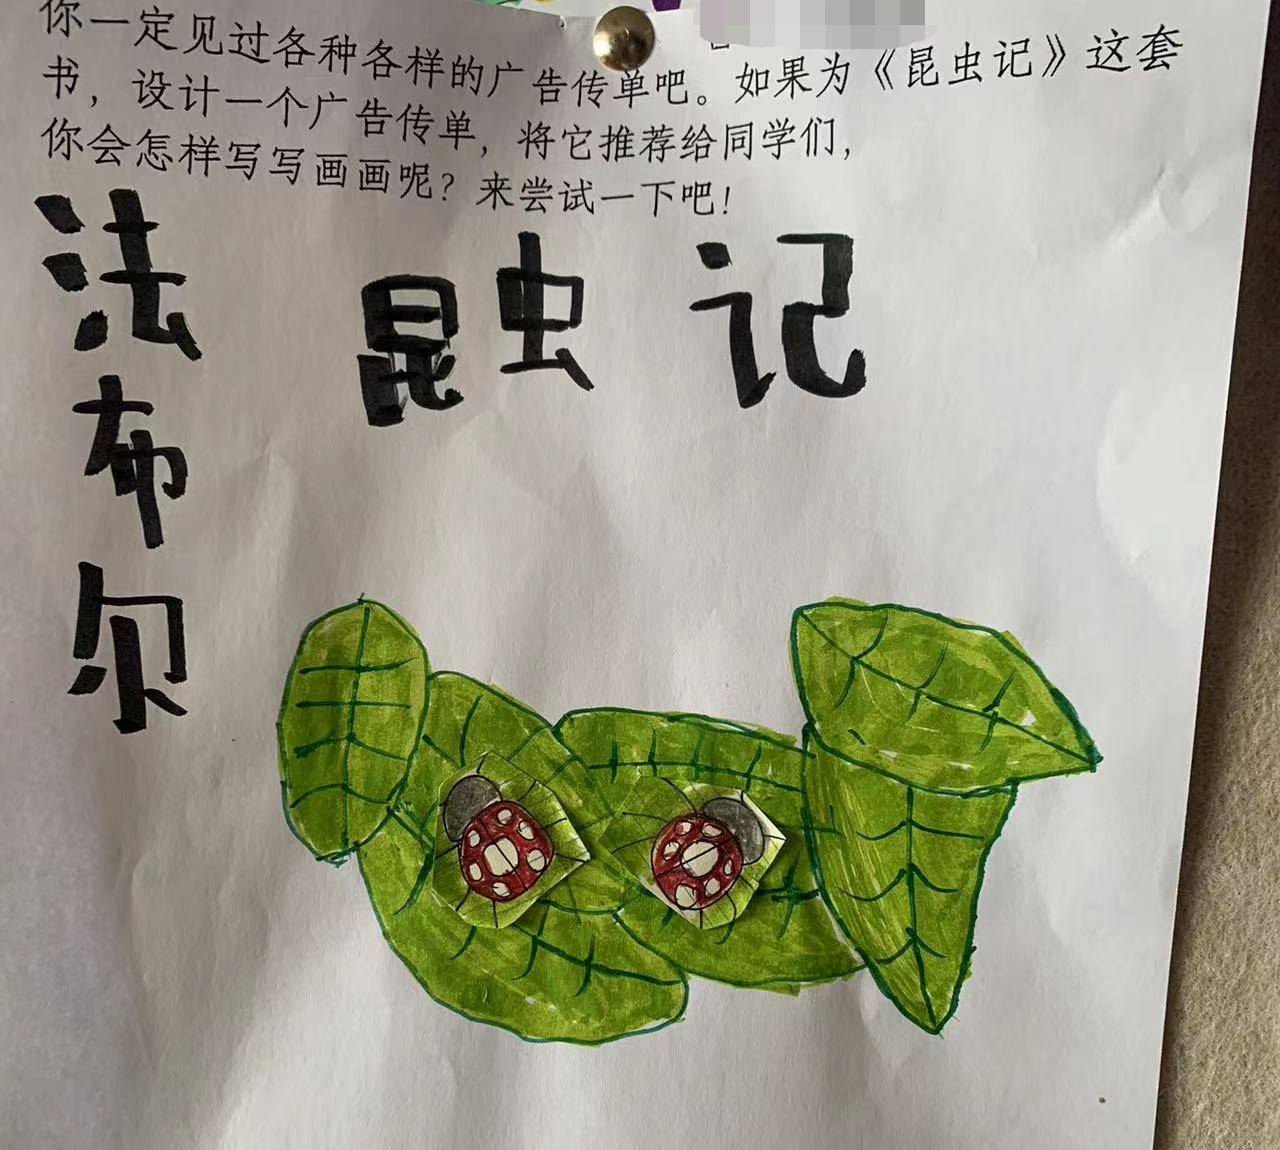 你一定见过各种各样的广告传单吧。如果为《昆虫记》这套
书，设计一个广告传单，将它推荐给同学们，
你会怎样写写画画呢？来尝试一下吧！
昆虫记
法布尔